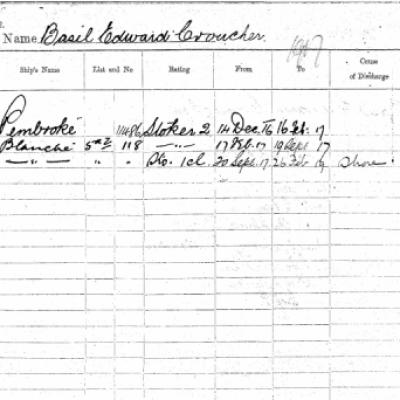 Name Basil Edward Croucher.
1917
Ship's Name List and No Rating From To Cause of Discharge
Pembroke 11486 Stoker 2 14 Dec. 16 16 Feb. 17
Blanche 5 118 —"— 17 Feb. 17 19 Sept 17
—"— " " Sto. 1cl. 20 Sept. 17 26 Feb 19 Shore.